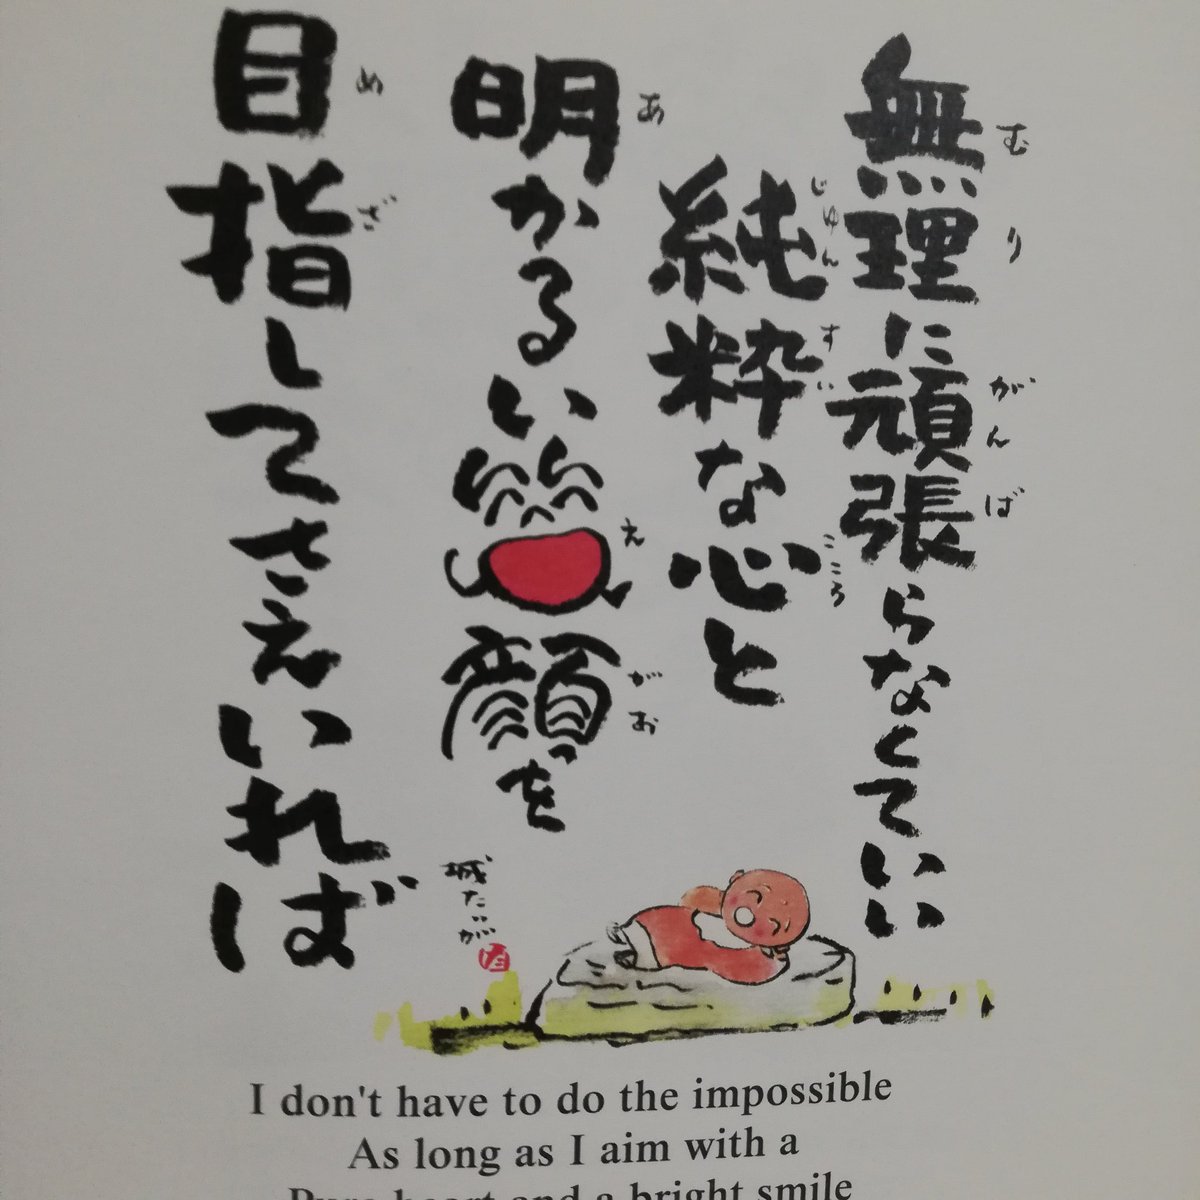 無理に頑張らなくていい
むりがんば
純粋な心と
じゅんすいこころ
明かるい笑顔を
あえがお
目指してさえいれば
めざ
城たいが
I don't have to do the impossible
As long as I aim with a
Pure heart and a bright smile